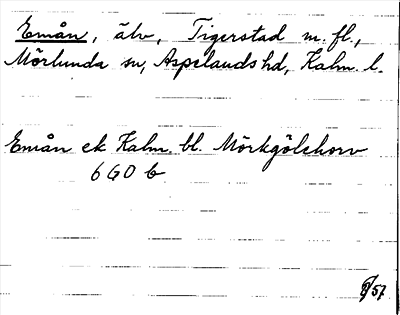 Emån, älv, Tigerstad m. fl.,
Mörlunda sn, Aspelands hd, Kalm. l.
Emån ek Kalm. bl. Mörkgölshorv
6 G O b
57